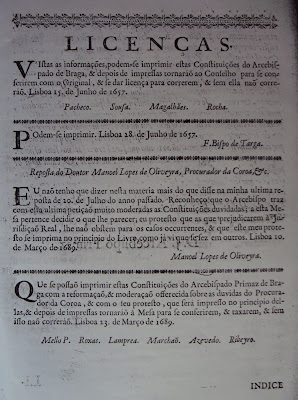 LICENCAS.
VIstas as informações, podem-se imprimir estas Constituições do Arcebis-
pado de Braga, & depois de impressas tornaraõ ao Conselho para se con-
ferirem com o Original, & se dar licença para correrem, & sem ella naõ corre-
raõ. Lisboa 15. de Junho de 1657.
Pacheco. Sousa. Magalhães. Rocha.
POdem-se imprimir. Lisboa 28. de Junho de 1657.
F. Bispo de Targa.
Reposta do Doutor Manoel Lopes de Oliveyra, Procurador da Coroa, &c.
EU naõ tenho que dizer nesta materia mais do que disse na minha ultima re-
posta de 20. de Julho do anno passado. Reconheço que o Arcebispo traz
com esta ultima petiçaõ muito moderadas as Constituições duvidadas; a esta Me-
za pertence decidir o que lhe parecer, eu protesto que as que prejudicarem à Ju-
risdiçaõ Real, lhe naõ obstem para os casos occurrentes, & que este meu protes-
to se imprima no principio do Livro, como já que se fez em outros. Lisboa 10.
de Março de 1689.
Manoel Lopes de Oliveyra.
QUe se possaõ imprimir estas Constituições do Arcebispado Primas de Bra-
ga com a reformaçaõ, & moderaçaõ offerecida sobre as duvidas do Procura-
dor da Coroa, & com o seu protesto, que será impresso no principio del-
las, & depois de impressas tornaráõ à Mesa para se conferirem, & taxarem, & sem
isso naõ correráõ. Lisboa 23. de Março de 1689.
Mello P. Roxas. Lamprea. Marchaõ. Azevedo. Ribeyro.
INDICE